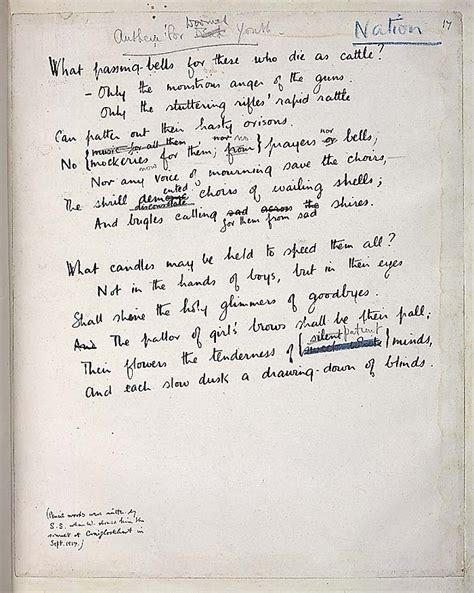 Anthem for Doomed Dead Youth
Nation
17
What passing-bells for these who die as cattle?
- Only the monstrous anger of the guns.
Only the stuttering rifles' rapid rattle
Can patter out their hasty orisons.
music for all them nor no
No { mockeries for them; from } prayers nor or bells;
Nor any voice of mourning save the choirs,-
The shrill demented choirs of wailing shells;
disconsolate
And bugles calling sad across the shires.
for them from sad
What candles may be held to speed them all?
Not in the hands of boys, but in their eyes
Shall shine the holy glimmers of goodbyes.
And The pallor of girls' brows shall be their pall;
silent patient
Their flowers the tenderness of { } minds,
And each slow dusk a drawing-down of blinds.
(Pencil words were written by
S.S. when W. showed him the
sonnet at Craiglockhart in
Sept. 1917.)